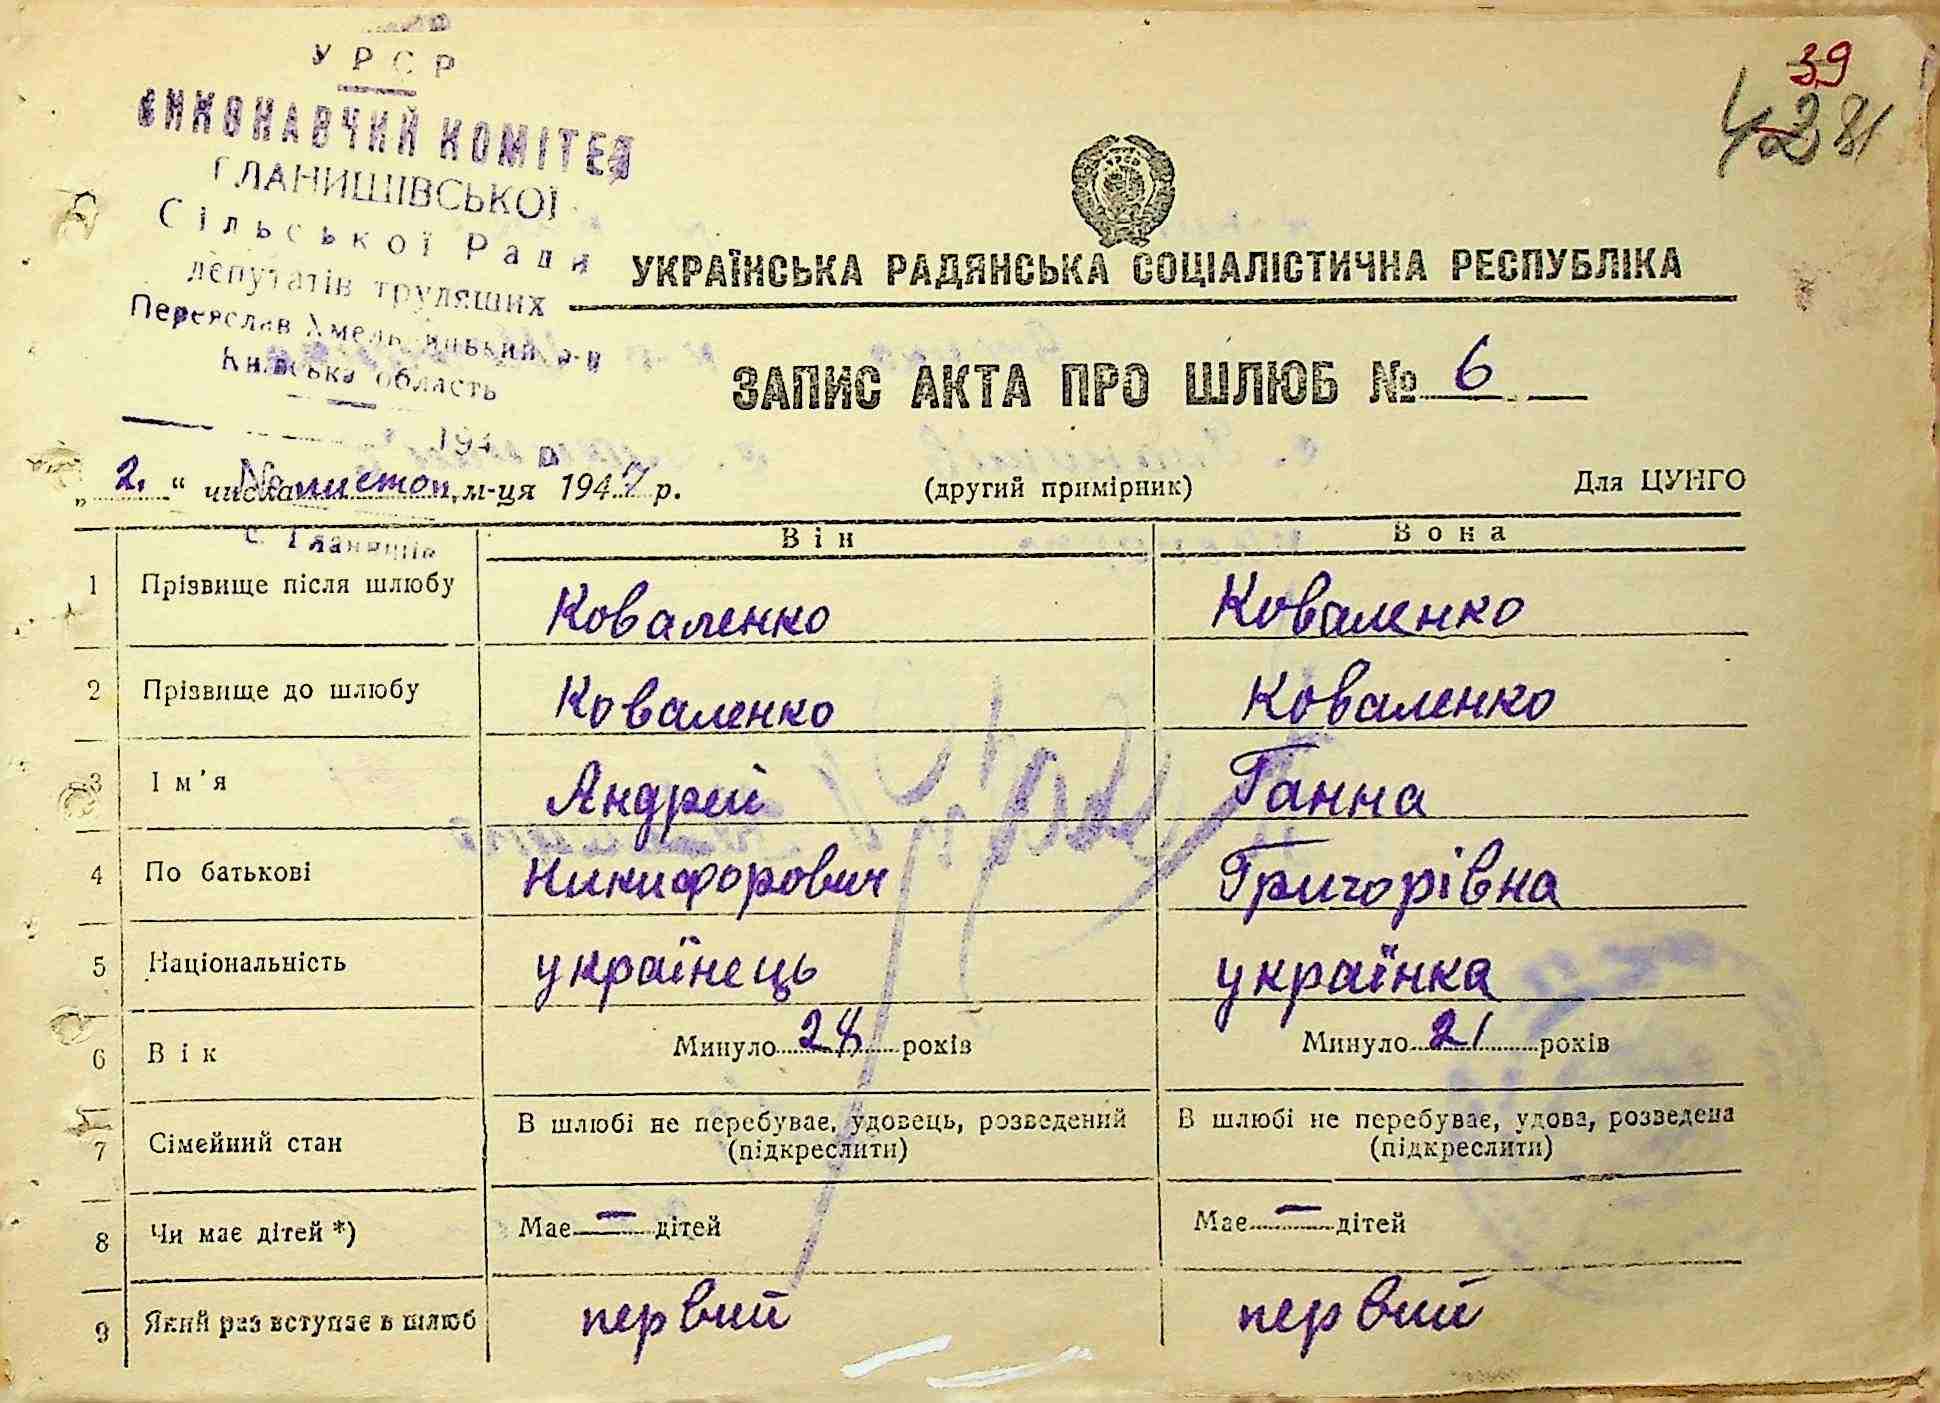 УРСР
ВИКОНАВЧИЙ КОМІТЕТ
ГЛАНИШІВСЬКОЇ
Сільської Ради
депутатів трудящих
Переяслав Хмельницький р-н
Київська область
194
№
с. Гланишів
39
УКРАЇНСЬКА РАДЯНСЬКА СОЦІАЛІСТИЧНА РЕСПУБЛІКА
ЗАПИС АКТА ПРО ШЛЮБ № 6
„ 2. “ числа листоп, м-ця 1947 р. (другий примірник) Для ЦУНГО
Він Вона
1 Прізвище після шлюбу Коваленко Коваленко
2 Прізвище до шлюбу Коваленко Коваленко
3 Ім’я Андрей Ганна
4 По батькові Никифорович Григорівна
5 Національність українець українка
6 Вік Минуло 28 років Минуло 21 років
7 Сімейний стан В шлюбі не перебуває, удовець, розведений (підкреслити) В шлюбі не перебуває, удова, розведена (підкреслити)
8 Чи має дітей *) Має — дітей Має — дітей
9 Який раз вступає в шлюб первий первий